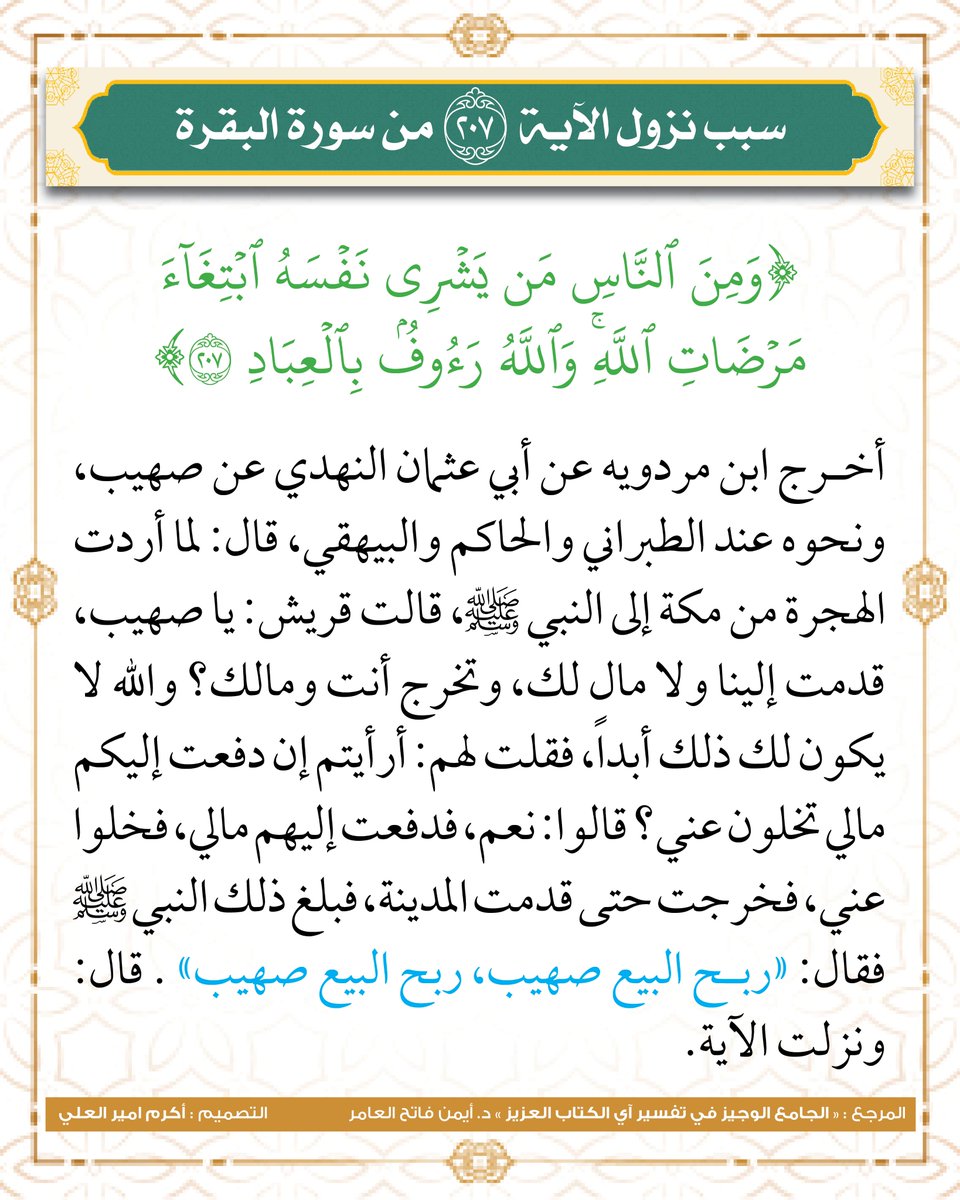 سبب نزول الآية ٢٠٧ من سورة البقرة
﴿وَمِنَ ٱلنَّاسِ مَن يَشۡرِي نَفۡسَهُ ٱبۡتِغَآءَ
مَرۡضَاتِ ٱللَّهِۚ وَٱللَّهُ رَءُوفُۢ بِٱلۡعِبَادِ ٢٠٧﴾
أخـرج ابن مردويه عن أبي عثمان النهدي عن صهيب،
ونحوه عند الطبراني والحاكم والبيهقي، قال: لما أردت
الهجرة من مكة إلى النبي ﷺ، قالت قريش: يا صهيب،
قدمت إلينا ولا مال لك، وتخرج أنت ومالك؟ والله لا
يكون لك ذلك أبداً، فقلت لهم: أرأيتم إن دفعت إليكم
مالي تخلون عني؟ قالوا: نعم، فدفعت إليهم مالي، فخلوا
عني، فخرجت حتى قدمت المدينة، فبلغ ذلك النبي ﷺ
فقال: «ربـح البيع صهيب، ربح البيع صهيب» . قال:
ونزلت الآية.
المرجع : « الجامع الوجيز في تفسير آي الكتاب العزيز » د. أيمن فاتح العامر التصميم : أكرم امير العلي